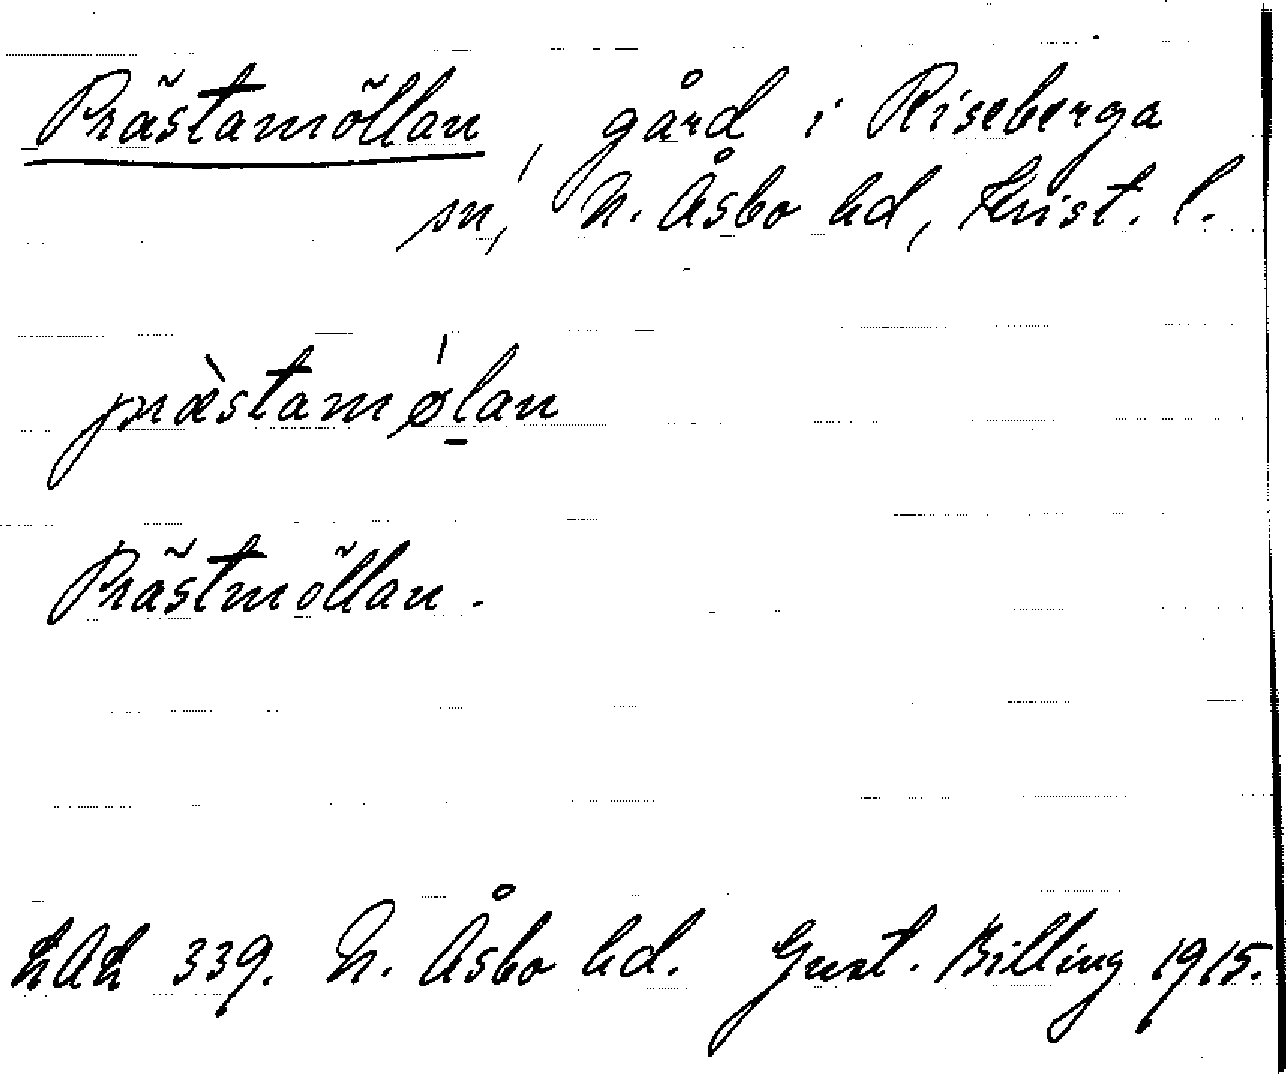 Prästamöllan, gård i Riseberga
sn, N. Åsbo hd, Krist. l.
præ̀stamǿlan
Prästmöllan.
LAL 339. N. Åsbo hd. Gust. Billing 1915.